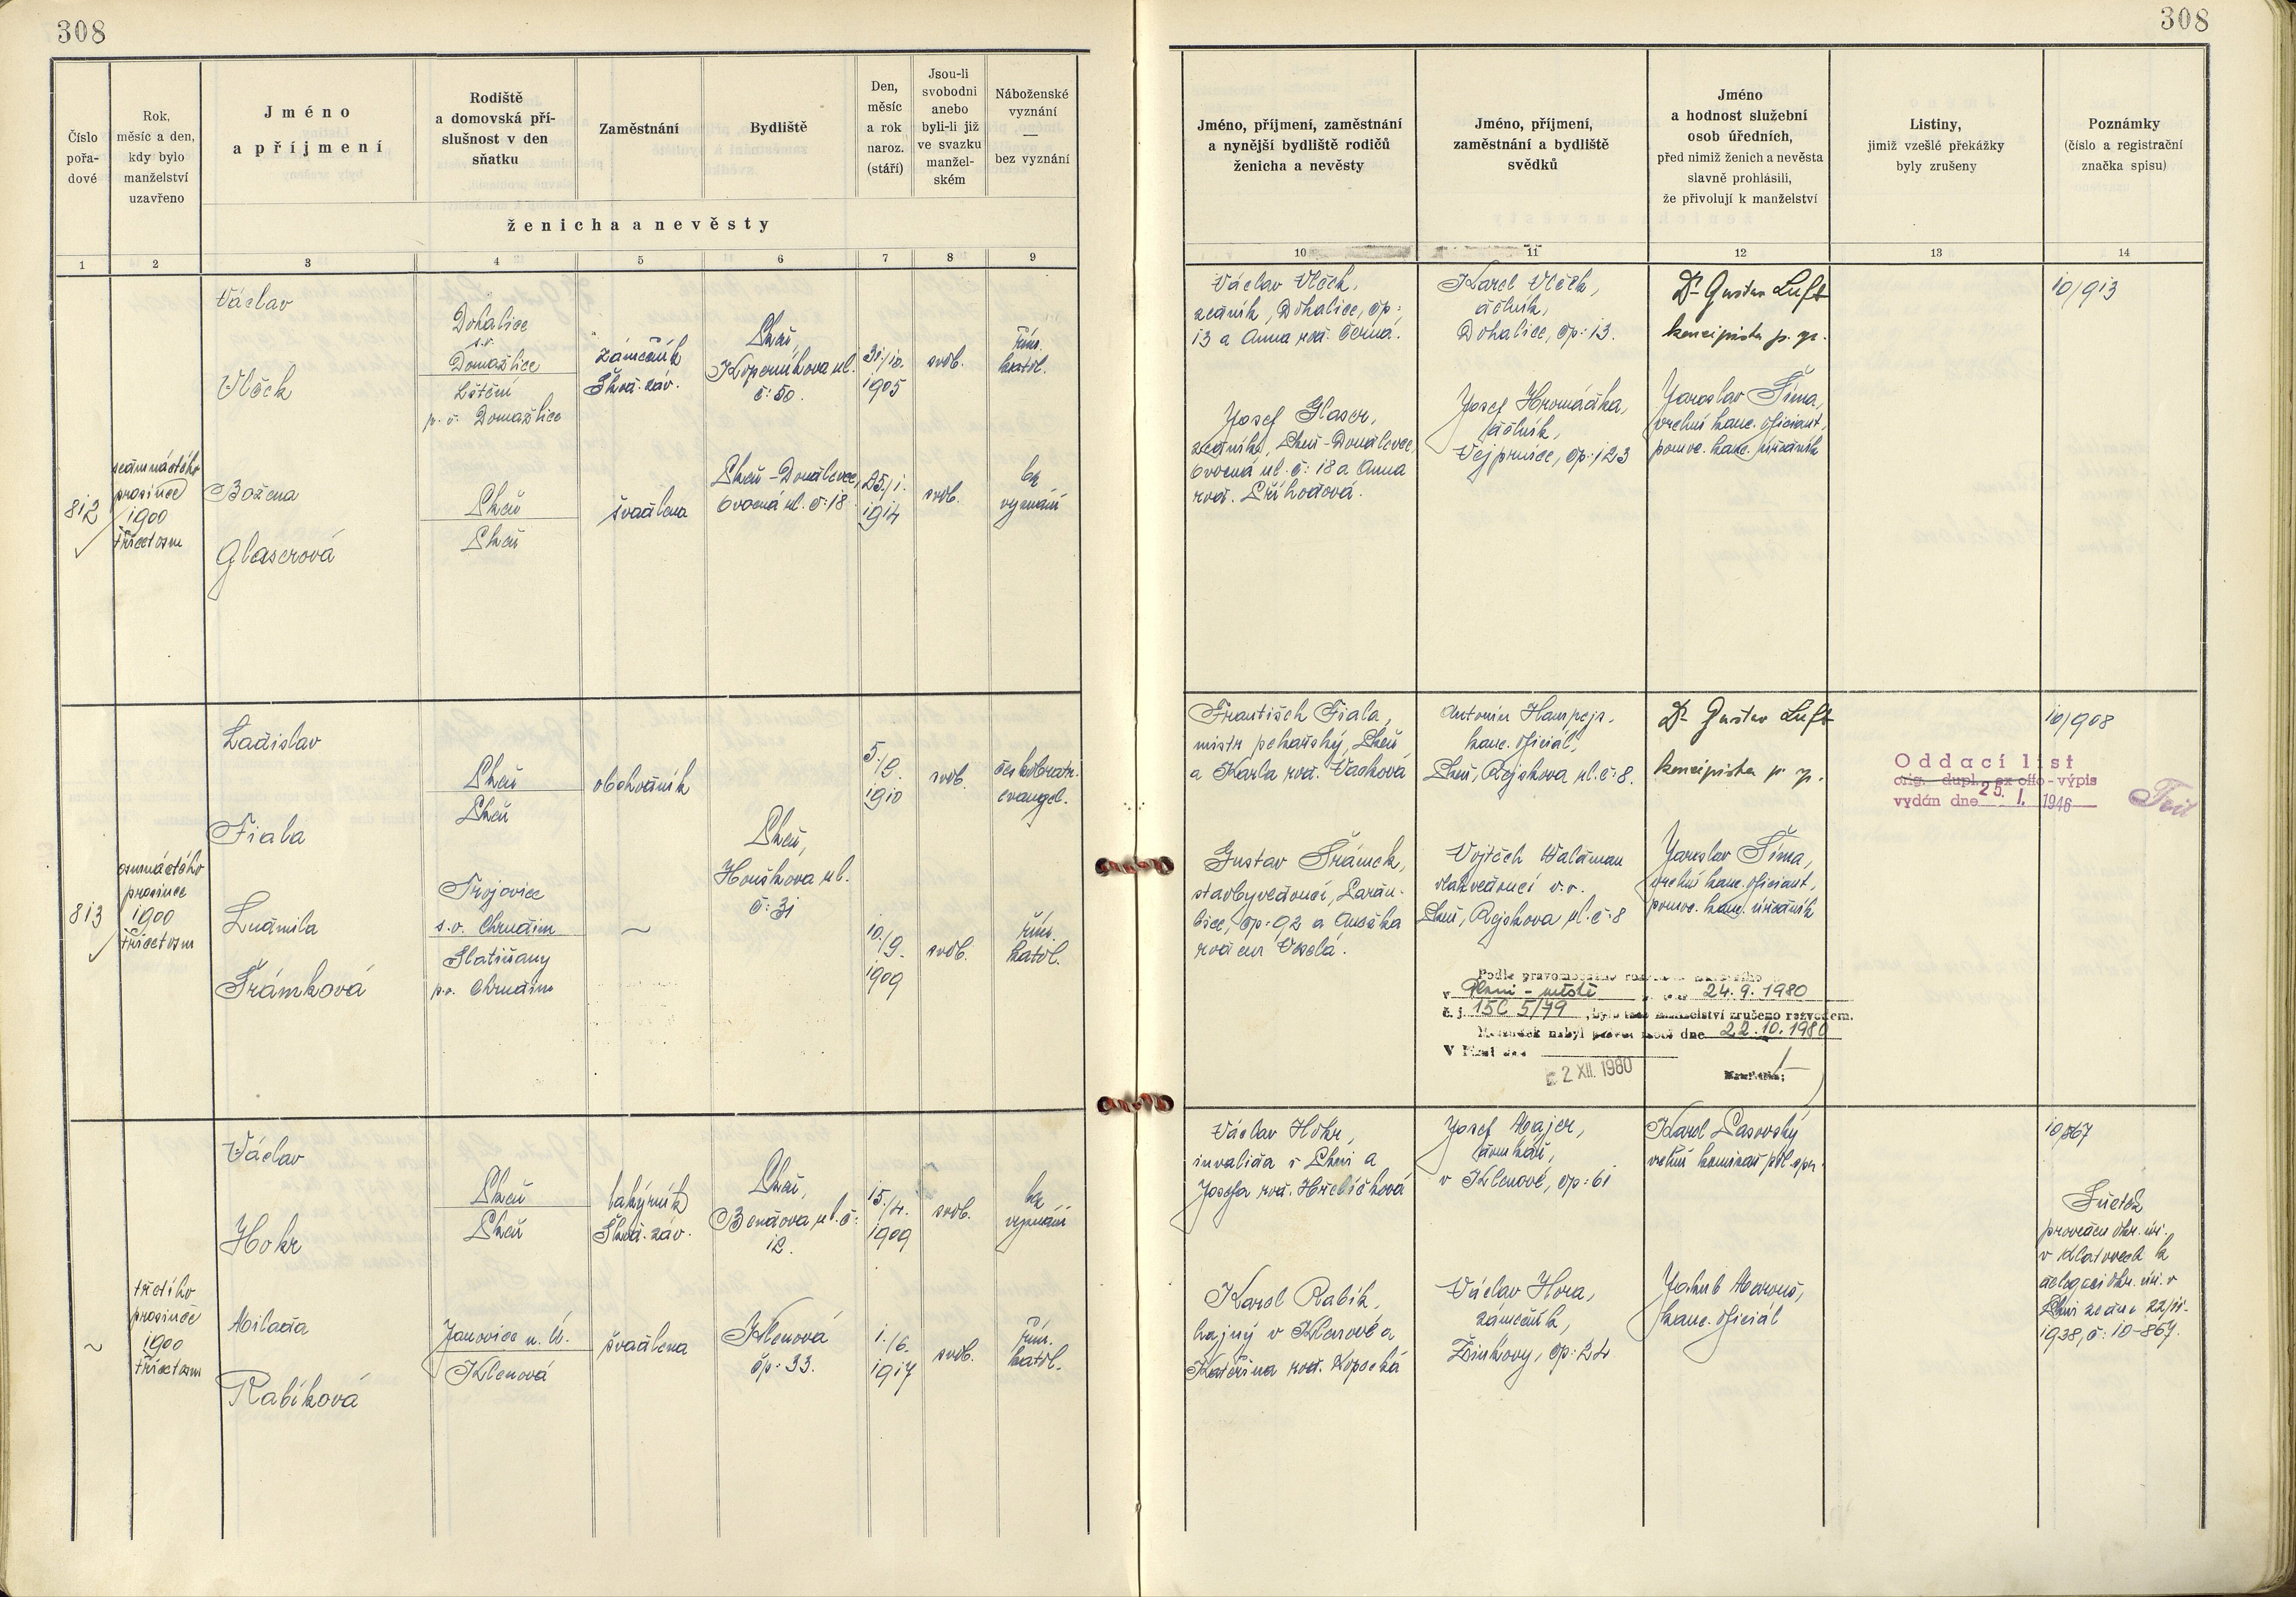 308
308
Číslo
pořa-
dové
Rok,
měsíc a den,
kdy bylo
manželství
uzavřeno
Jméno
a příjmení
Rodiště
a domovská pří-
slušnost v den
sňatku
Zaměstnání
Bydliště
Den,
měsíc
a rok
naroz.
(stáří)
Jsou-li
svobodni
anebo
byli-li již
ve svazku
manžel-
ském
Náboženské
vyznání
—
bez vyznání
ženicha a nevěsty
Jméno, příjmení, zaměstnání
a nynější bydliště rodičů
ženicha a nevěsty
Jméno, příjmení,
zaměstnání a bydliště
svědků
Jméno
a hodnost služební
osob úředních,
před nimiž ženich a nevěsta
slavně prohlásili,
že přivolují k manželství
Listiny,
jimiž vzešlé překážky
byly zrušeny
Poznámky
(číslo a registrační
značka spisu)
1 2 3 4 5 6 7 8 9
10 11 12 13 14
812
sedmnáctého
prosince
1900
třicetosm
Václav
Vlček
Božena
Glaserová
Dohalice
s.o.
Domažlice
p. o. Domažlice
Plzeň
Plzeň
zámečník
Škod. záv.
švadlena
Plzeň,
Koperníkova ul.
č: 50.
Plzeň-Doudlevce,
Ovocná ul. č: 18
31./10.
1905
25./1.
1914
svob.
svob.
řím.
katol.
bez
vyznání
Václav Vlček,
zedník, Dohalice, čp:
13 a Anna roz. Černá.
Josef Glaser,
zedník, Plzeň-Doudlevce,
Ovocná ul. č: 18 a Anna
roz. Příhodová.
Karel Vlček,
dělník,
Dohalice, čp: 13.
Josef Hromádka,
dělník,
Vejprnice, čp: 123
Dr Gustav Luft
koncipista p. sp.
Jaroslav Šíma,
vrchní kanc. oficiant,
pomoc. kanc. úředník
10/913
813
osmnáctého
prosince
1900
třicetosm
Ladislav
Fiala
Ludmila
Šrámková
Plzeň
Plzeň
Trojovice
s.o. Chrudim
Slatiňany
p.o. Chrudim
obchodník
~
Plzeň,
Houškova ul.
č: 31
5./2.
1910
10./9.
1909
svob.
svob.
českobratr.
evangel.
řím.
katol.
František Fiala,
mistr pekařský, Plzeň
a Karla roz. Vacková
Gustav Šrámek,
stavbyvedoucí, Pardu-
bice, čp: 92 a Anežka
rozená Veselá.
Antonín Hampejs,
kanc. oficiál,
Plzeň, Rejskova ul. č: 8.
Vojtěch Waldman
vlakvedoucí v.v.
Plzeň, Rejskova ul. č: 8
Dr Gustav Luft
koncipista p. sp.
Jaroslav Šíma,
vrchní kanc. oficiant,
pomoc. kanc. úředník
10/908
Oddací list
orig. dupl. ex offo - výpis
vydán dne 25. 1. 1946
v Plzni - městě ze dne 24. 9. 1980
č. j. 15C 5/79, bylo toto manželství zrušeno rozvodem.
Rozsudek nabyl právní moci dne 22. 10. 1980
V Plzni dne
2 XII. 1980
~
třetího
prosince
1900
třicetosm
Václav
Hokr
Milada
Rabíková
Plzeň
Plzeň
Janovice n. Ú.
Klenová
lakýrník
Škod. záv.
švadlena
Plzeň,
Bendova ul. č:
12.
Klenová
čp: 33.
15./4.
1909
1./6.
1917
svob.
svob.
bez
vyznání
řím.
katol.
Václav Hokr,
invalida v Plzni a
Josefa roz. Hřebíčková
Karel Rabík,
hajný v Klenové a
Kateřina roz. Kopecká
Josef Majer,
domkář,
v Klenové, čp: 61
Václav Hora,
zámečník,
Žinkovy, čp: 24
Karel Pasovský
vrchní komisař pol. spr.
Jakub Marouš,
kanc. oficiál
10/867
Sňatek
proveden okr. úř.
v Klatovech k
delegaci okr. úř. v
Plzni ze dne 22/11.
1938, č: 10-867.